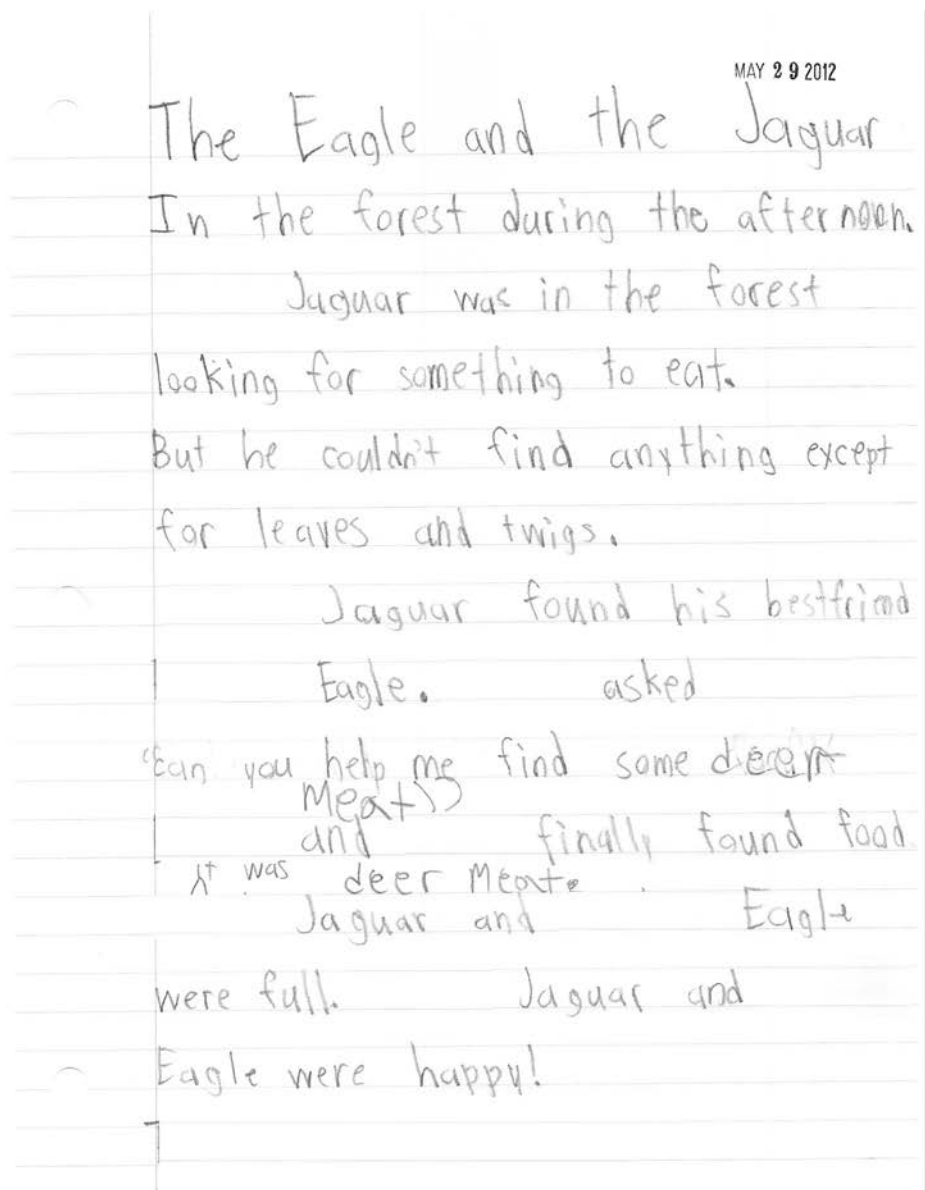 MAY 29 2012
The Eagle and the Jaguar
In the forest during the afternoon.
Jaguar was in the forest
looking for something to eat.
But he couldn't find anything except
for leaves and twigs.
Jaguar found his bestfriend
Eagle. asked
"Can you help me find some deer
Meat"
and finally found food
it was deer Meat.
Jaguar and Eagle
were full. Jaguar and
Eagle were happy!